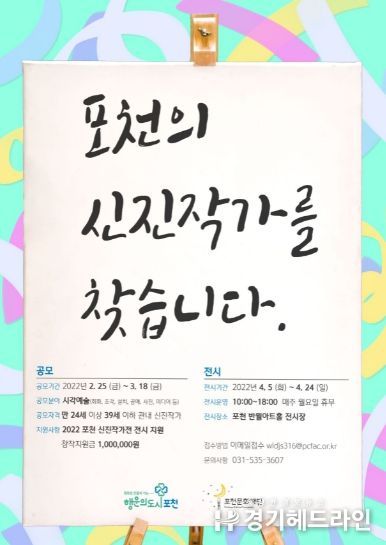 포천의
신진작가를
찾습니다.
공모
공모기간 2022년 2. 25 (금) ~ 3. 18 (금)
공모분야 시각예술(회화, 조각, 설치, 공예, 사진, 미디어 등)
공모자격 만 24세 이상 39세 이하 관내 신진작가
지원사항 2022 포천 신진작가전 전시 지원
창작지원금 1,000,000원
전시
전시기간 2022년 4. 5 (화) ~ 4. 24 (일)
전시운영 10:00~18:00 매주 월요일 휴무
전시장소 포천 반월아트홀 전시장
접수방법 이메일접수 widjs316@pcfac.or.kr
문의사항 031-535-3607
행운의도시 포천
포천문화재단
경기헤드라인